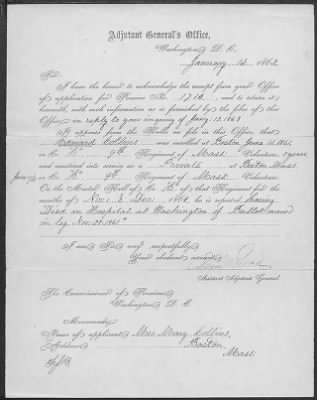 Adjutant General's Office,
Washington, D. C.
January 14, 1863
Sir,
I have the honor to acknowledge the receipt from your Office
of application for Pension No. 1710, and to return it
herewith, with such information as is furnished by the files of this
Office in reply to your inquiry of Jany. 13, 1863
It appears from the Rolls on file in this Office, that
Collins was enrolled at Boston June 11, 1861,
in Co. 9th Regiment of Mass. Volunteers, 3 years
and mustered into service as a Private at Boston Mass
in Co. 9th Regiment of Mass. Volunteers.
On the Muster Roll of Co. of that Regiment for the
months of Nov. & Dec. 186, he is reported having
Died in Hospital at Washington of Bullet wound
in leg Nov. 26, 1861
I am Sir, very respectfully,
Your obedient servant,
Assistant Adjutant General.
The Commissioner of Pensions
Washington, D. C.
Memoranda
Name of applicant Mrs Mary Collins,
Address Boston,
Mass.